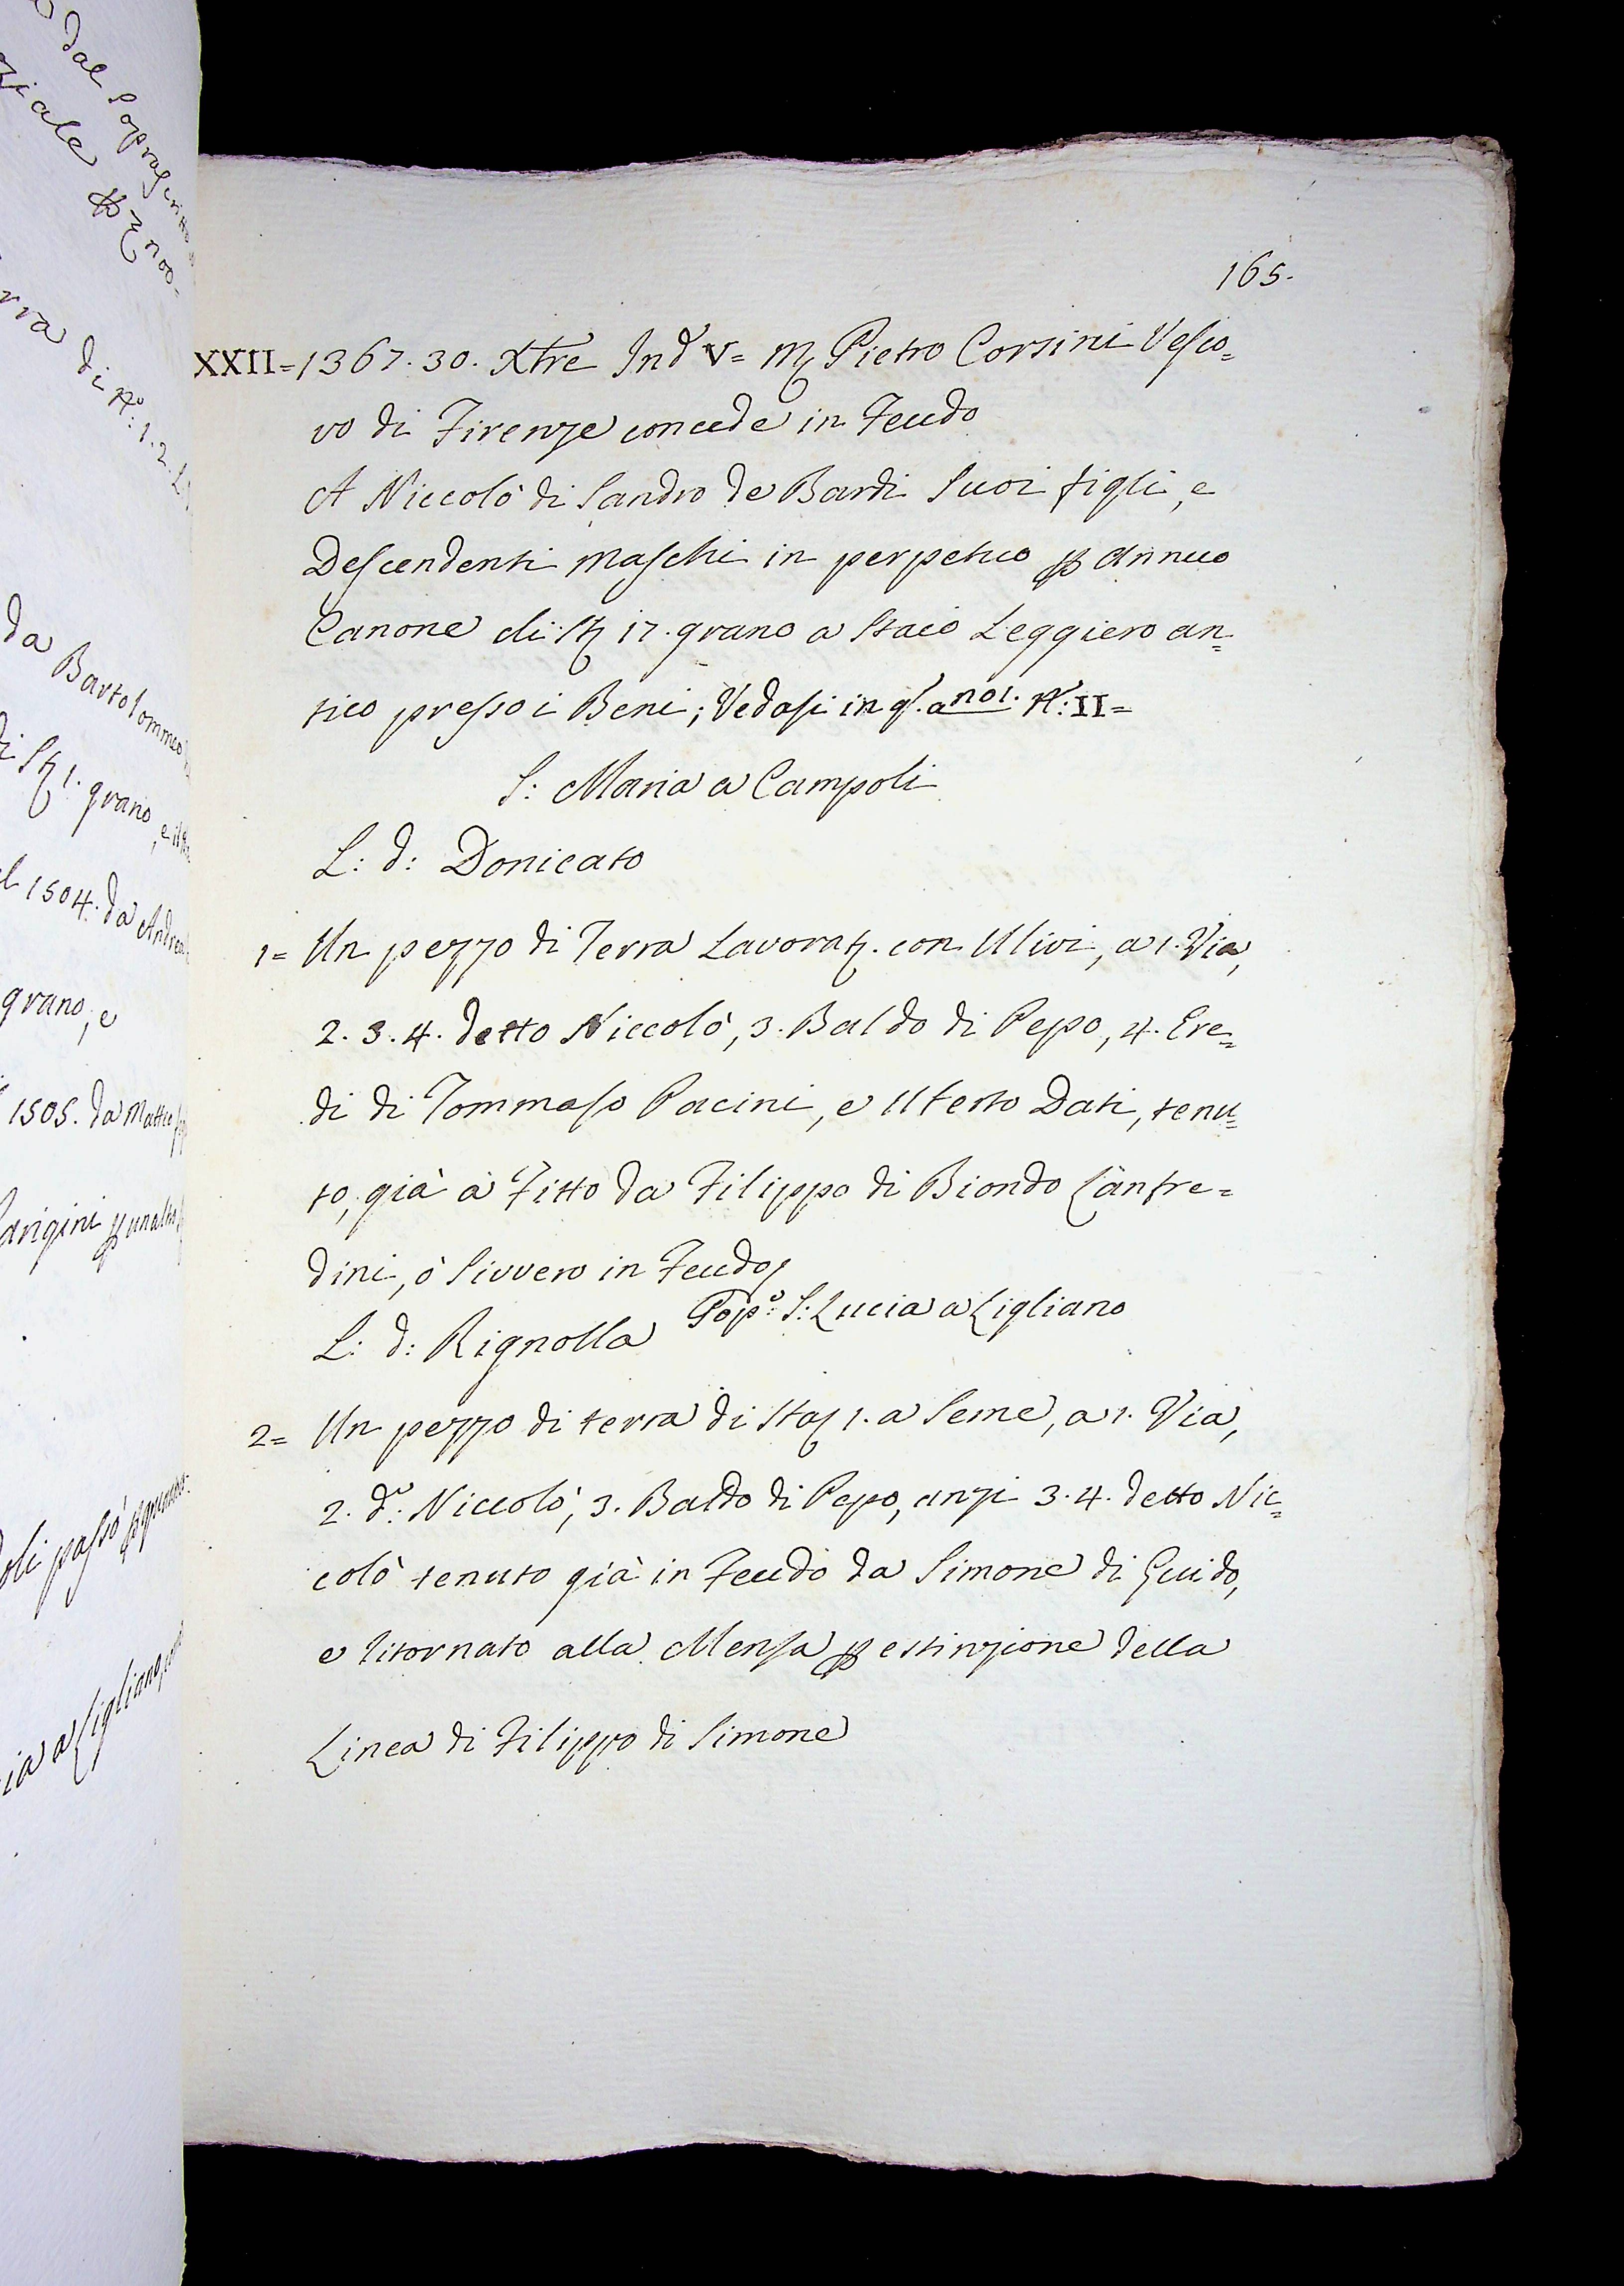 165.
XXII= 1367. 30. Xbre Ind. V= M. Pietro Corsini Vesco=
vo di Firenze concede in Feudo
A Niccolò di Sandro de Bardi Suoi figli, e
Descendenti Maschi in perpetuo p Annuo
Canone di St. 17. grano a Staio Leggiero an=
tico presso i Beni; Vedasi in q. a no 1. N.: II=
S: Maria a Campoli
L: d: Donicato
1= Un pezzo di Terra Lavorat. con Ulivi, a 1. Via,
2. 3. 4. detto Niccolò, 3. Baldo di Pepo, 4. Ere=
di di Tommaso Pacini, e Uberto Dati, tenu=
to, già a Fitto da Filippo di Biondo Canfre=
dini, ò Sivvero in Feudo
Pop.o: S: Lucia a Sigliano
L: d: Rignolla
2= Un pezzo di terra di Sta 1. a Seme, a 1. Via,
2. d.o: Niccolò, 3. Baldo di Pepo, anzi 3. 4. detto Nic=
colò tenuto già in Feudo da Simone di Guido,
e ritornato alla Mensa p estinzione della
Linea di Filippo di Simone
dal Soprascritto
rra di N.o: 1. 2.
da Bartolommeo
di St. 1. grano, e
1504. da Andrea
grano, e
1505. da Matteo
Parigini p
oli passò
ia a Sigliano